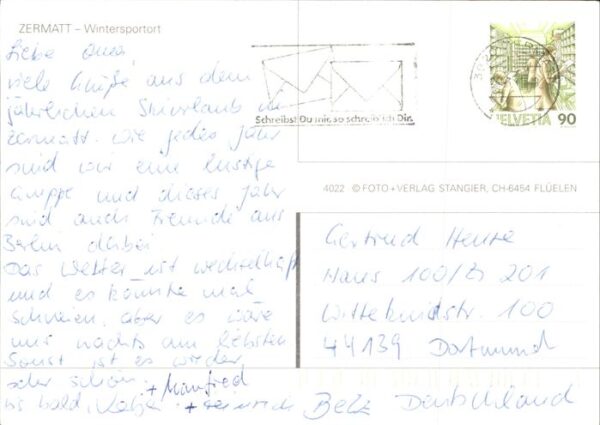 ZERMATT – Wintersportort
Liebe Oma,
viele Grüße aus dem
jährlichen Skiurlaub in
Zermatt. Wie jedes Jahr
sind wir eine lustige
Gruppe und dieses Jahr
sind auch Freunde aus
Berlin dabei.
Das Wetter ist wechselhaft
und es könnte mal
schneien, aber es wäre
uns nachts am liebsten
Sonst ist es wieder
sehr schön.
+ Manfred
Bis bald, Katja + Heinrich
Schreibst Du mir, so schreib ich Dir.
HELVETIA 90
4022 © FOTO + VERLAG STANGIER, CH-6454 FLÜELEN
Gertrud
Haus 100/ 201
Wittekindstr. 100
44139 Dortmund
Deutschland